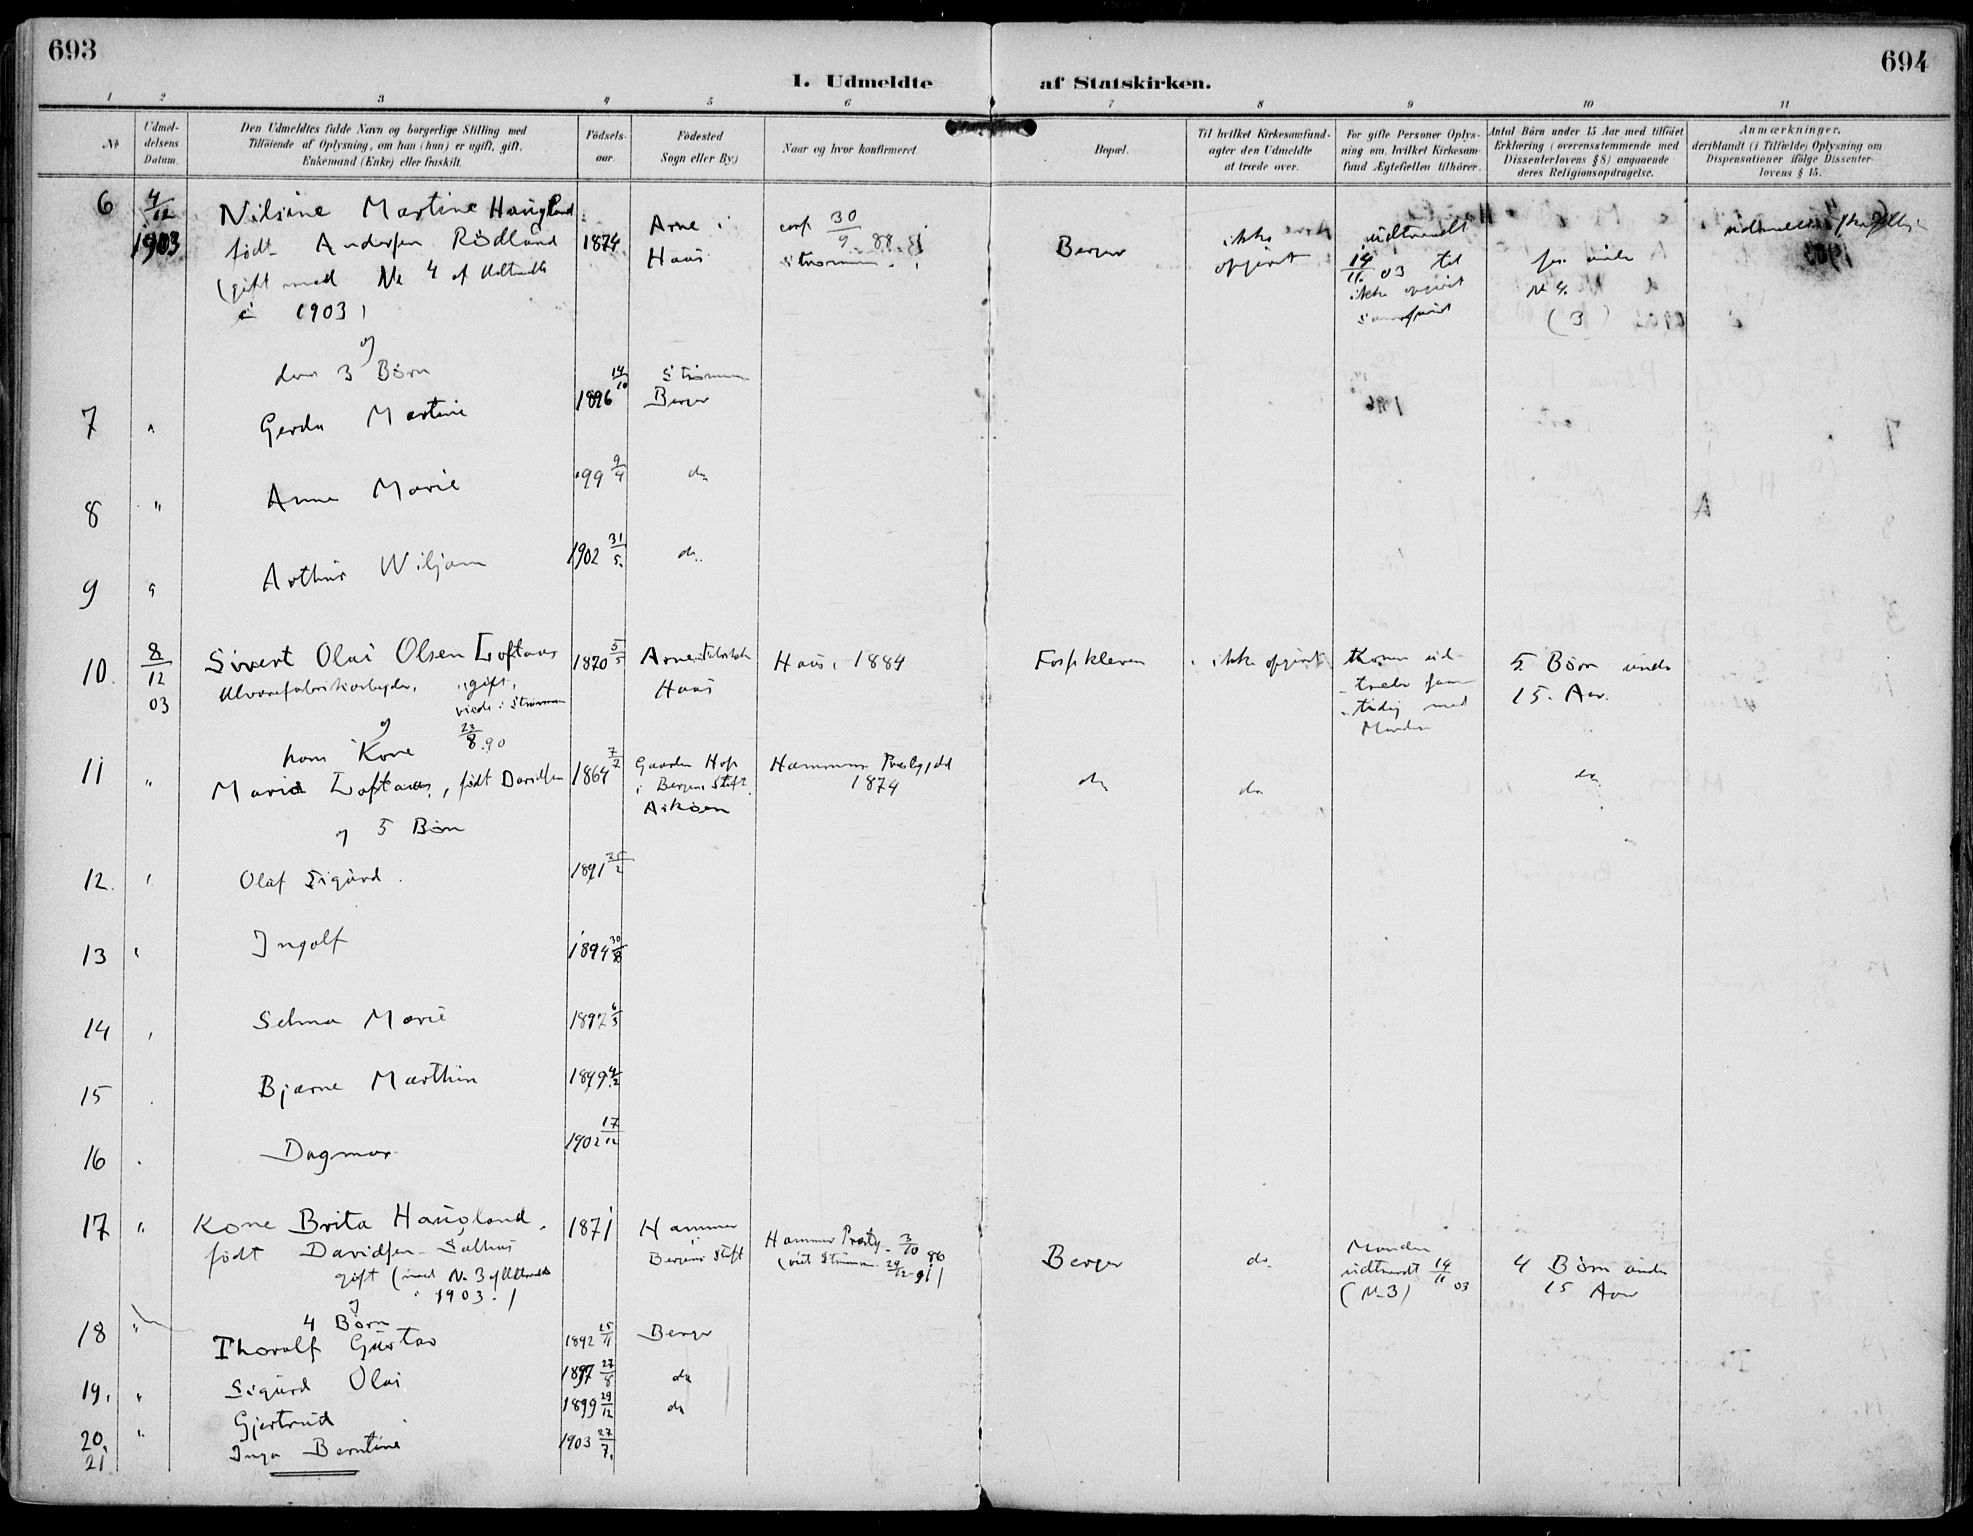 693
694
I. Udmeldte af Statskirken.
1 2 3 4 5 6 7 8 9 10 11
No
Udmel-
delsens
Datum.
Den Udmeldtes fulde Navn og borgerlige Stilling med
Tilføiende af Oplysning, om han (hun) er ugift, gift,
Enkemand (Enke) eller fraskilt.
Fødsels-
aar.
Fødested
Sogn eller By)
Naar og hvor konfirmeret.
Bopæl.
Til hvilket Kirkesamfund
agter den Udmeldte
at træde over.
For gifte Personer Oplys-
ning om, hvilket Kirkesam-
fund Ægtefællen tilhører.
Antal Børn under 15 Aar med tilføiet
Erklæring (overensstemmende med
Dissenterlovens § 8) angaaende
deres Religionsopdragelse.
Anmærkninger,
deriblandt (i Tilfælde) Oplysning om
Dispensationer ifølge Dissenter-
lovens § 15.
6 4/12 1903
Nilsine Martine Haugland
født Andersen Rödland
(gift med No 4 af Udtraadte
i 1903)
1874
Arne i
Haus
conf. 30/9 88 i
Strømmen
Berger
ikke
opgivet
udtraadt
14/11 03 til
ikke opgivet
samfund
No 4.
(3)
og
3 Børn
7 " Gerda Martine 1896 14/10 Strømmen
Berger
8 " Anna Marie 99 9/4 do
9 " Arthur Wiljam 1902 31/5 do
10. 8/12 03
Sivert Olai Olsen Loftaas
gift,
viede i Strømmen
23/8 90
1870 5/5
Arne
Haus
Haus, 1884
Fossekleven
ikke opgivet
Konen ud-
træder sam-
tidig med
Manden
5 Børn under
15 Aar.
og
hans Kone
11 " Maria Loftaas, født Davidsen
1864 7/7
Gaarden Hop
i Bergens Stift
Askøen
Hammer Præstegjeld
1874
do
do
do
og 5 Børn
12. " Olaf Sigurd. 1891 25/2
13 " Ingolf 1894 30/8
14 " Selma Marie 1897 6/5
15 Bjarne Marthin 1899 4/2
16 Dagmar 1902 17/12
17 " Kone Brita Haugland.
født Davidsen Salhus
gift (med No 3 af Udtraadte
i 1903.)
1871
Hammer
i
Bergens Stift
Hammer Præstg. 3/10 86
(viet Strømmen 29/12 91)
Berger
do
Manden
udtraadt 14/11 03
(No 3)
4 Børn under
15 Aar
og
4 Børn
18 " Thoralf Gustav 1892 25/11 Berger
19. " Sigurd Olai 1897 27/8 do
20. " Gjertrud 1899 29/12 do
21 Inga Berntine 1903 27/7.